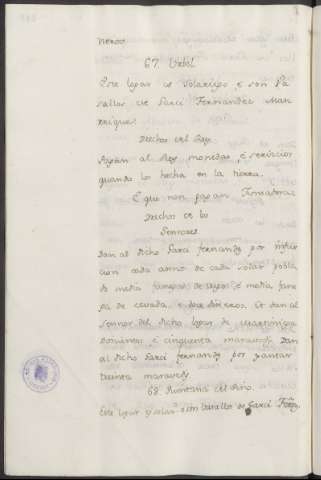 neros.
67. Urbel
Este logar es Solariego e son Va
sallos de Garci Fernandez Man
rrique.
Derechos del Rey.
Pagan al Rey monedas e servicios
quando los hecha en la tierra.
E que non pagan Fonsadera.
Derechos de los
Sennores
Dan al dicho Garci Fernandez por
cion cada anno de cada solar pobla
do media fanega de trigo e media fane
ga de cevada, e doce dineros. Et dan al
sennor del dicho logar de martiniega
doscientos e cinquenta maravedis. dan
al dicho Garci fernandez por yantar
treinta maravedis
68. Quintana del Pino.
Este logar es solariego e son Vasallos de Garci Fernz